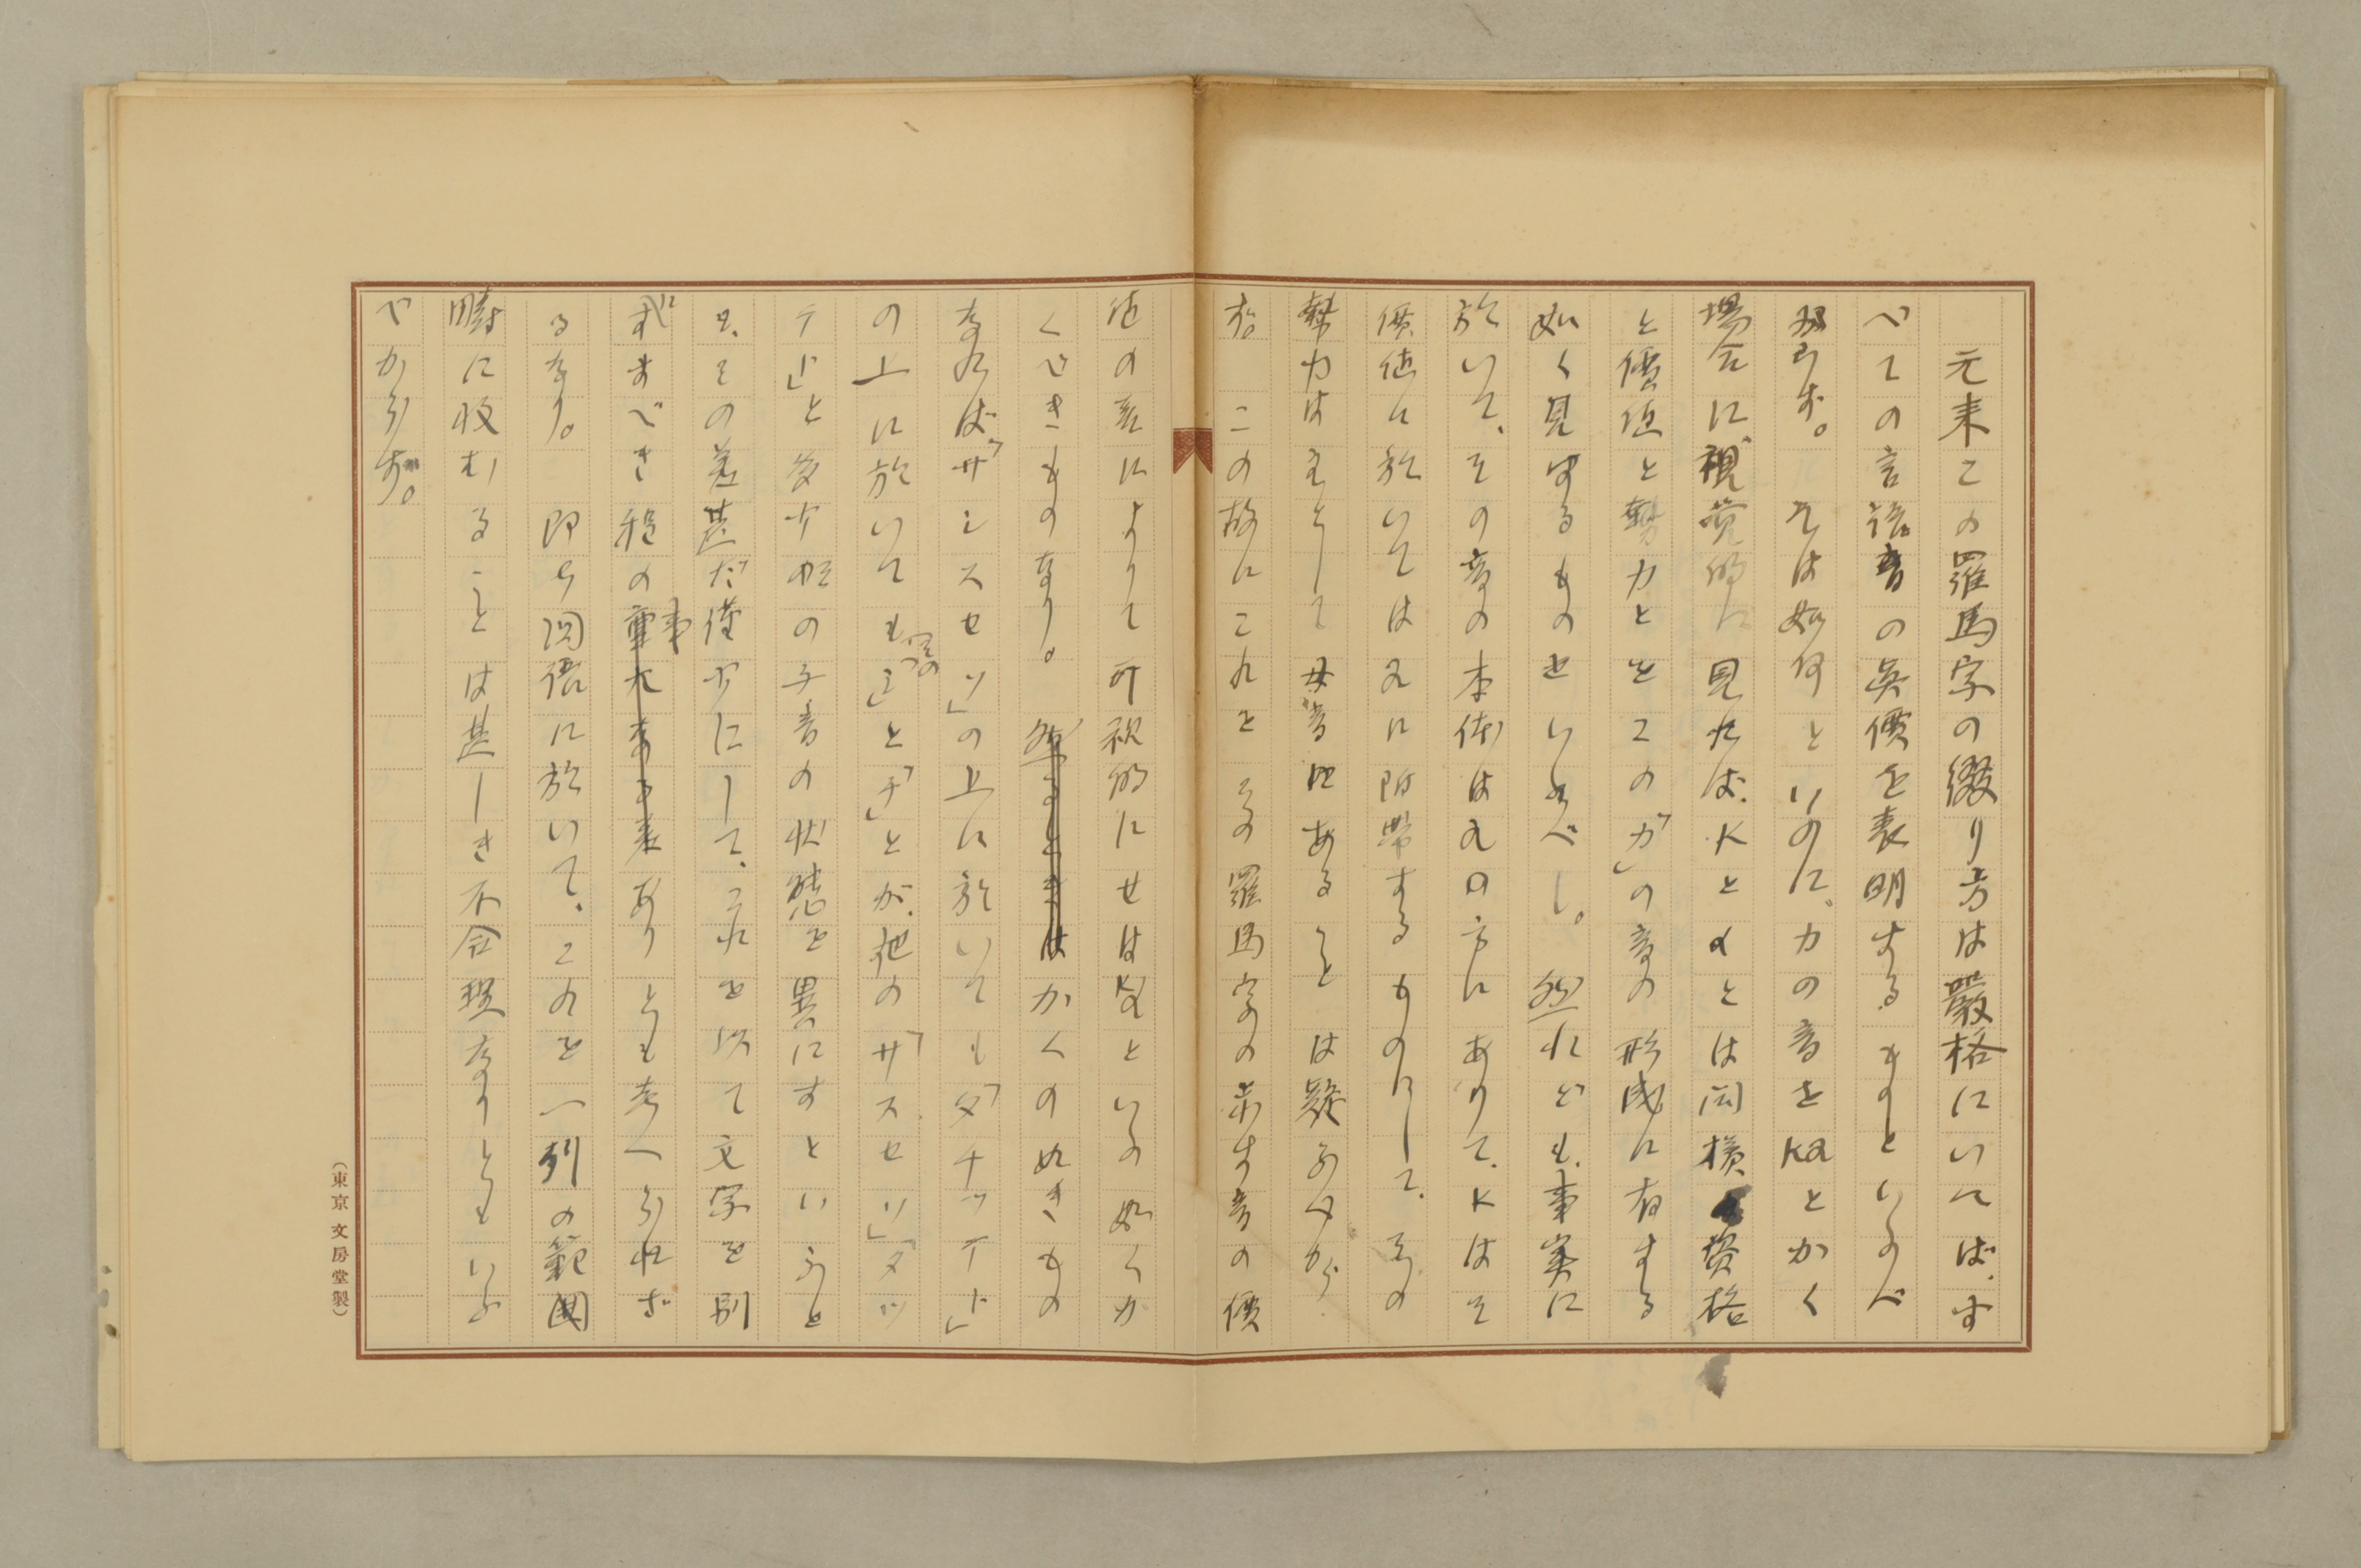 元来この羅馬字の綴り方は嚴格にいへば、す
べての言語音の眞價を表明するものといふべ
からず。そは如何といふに、カの音をkaとかく
場合に視覚的に見れば、kとaとは同様資格
と價値と勢力とをこの「カ」の音の形成に有する
如く見ゆるものといふべし。然れども、事実に
於いて、その音の本体はaの方にありて、kはそ
價値に於いてはaに附帯するものにして、その
勢力は主として母音にあることは疑ふべから
ず。この故にこれをその羅馬字の示す音の價
値の意によりて可視的にせばkaといふ如くか
くべきものなり。かくの如きもの
なれば「サシスセソ」の上に於いても「タチツテト」
の上に於いても「シ」と「チ」とが、他の「サスセソ」「タツ
テト」と多少他の子音の状態を異にすといふと
も、その差甚だ僅少にして、これを以て文字を別
にすべき程の事ありとも考へられざ
るなり。即ち国語に於いて、これを一列の範囲
疇に收むることは甚しき不合理なりともいふ
べからず。
（東京 文房堂製）